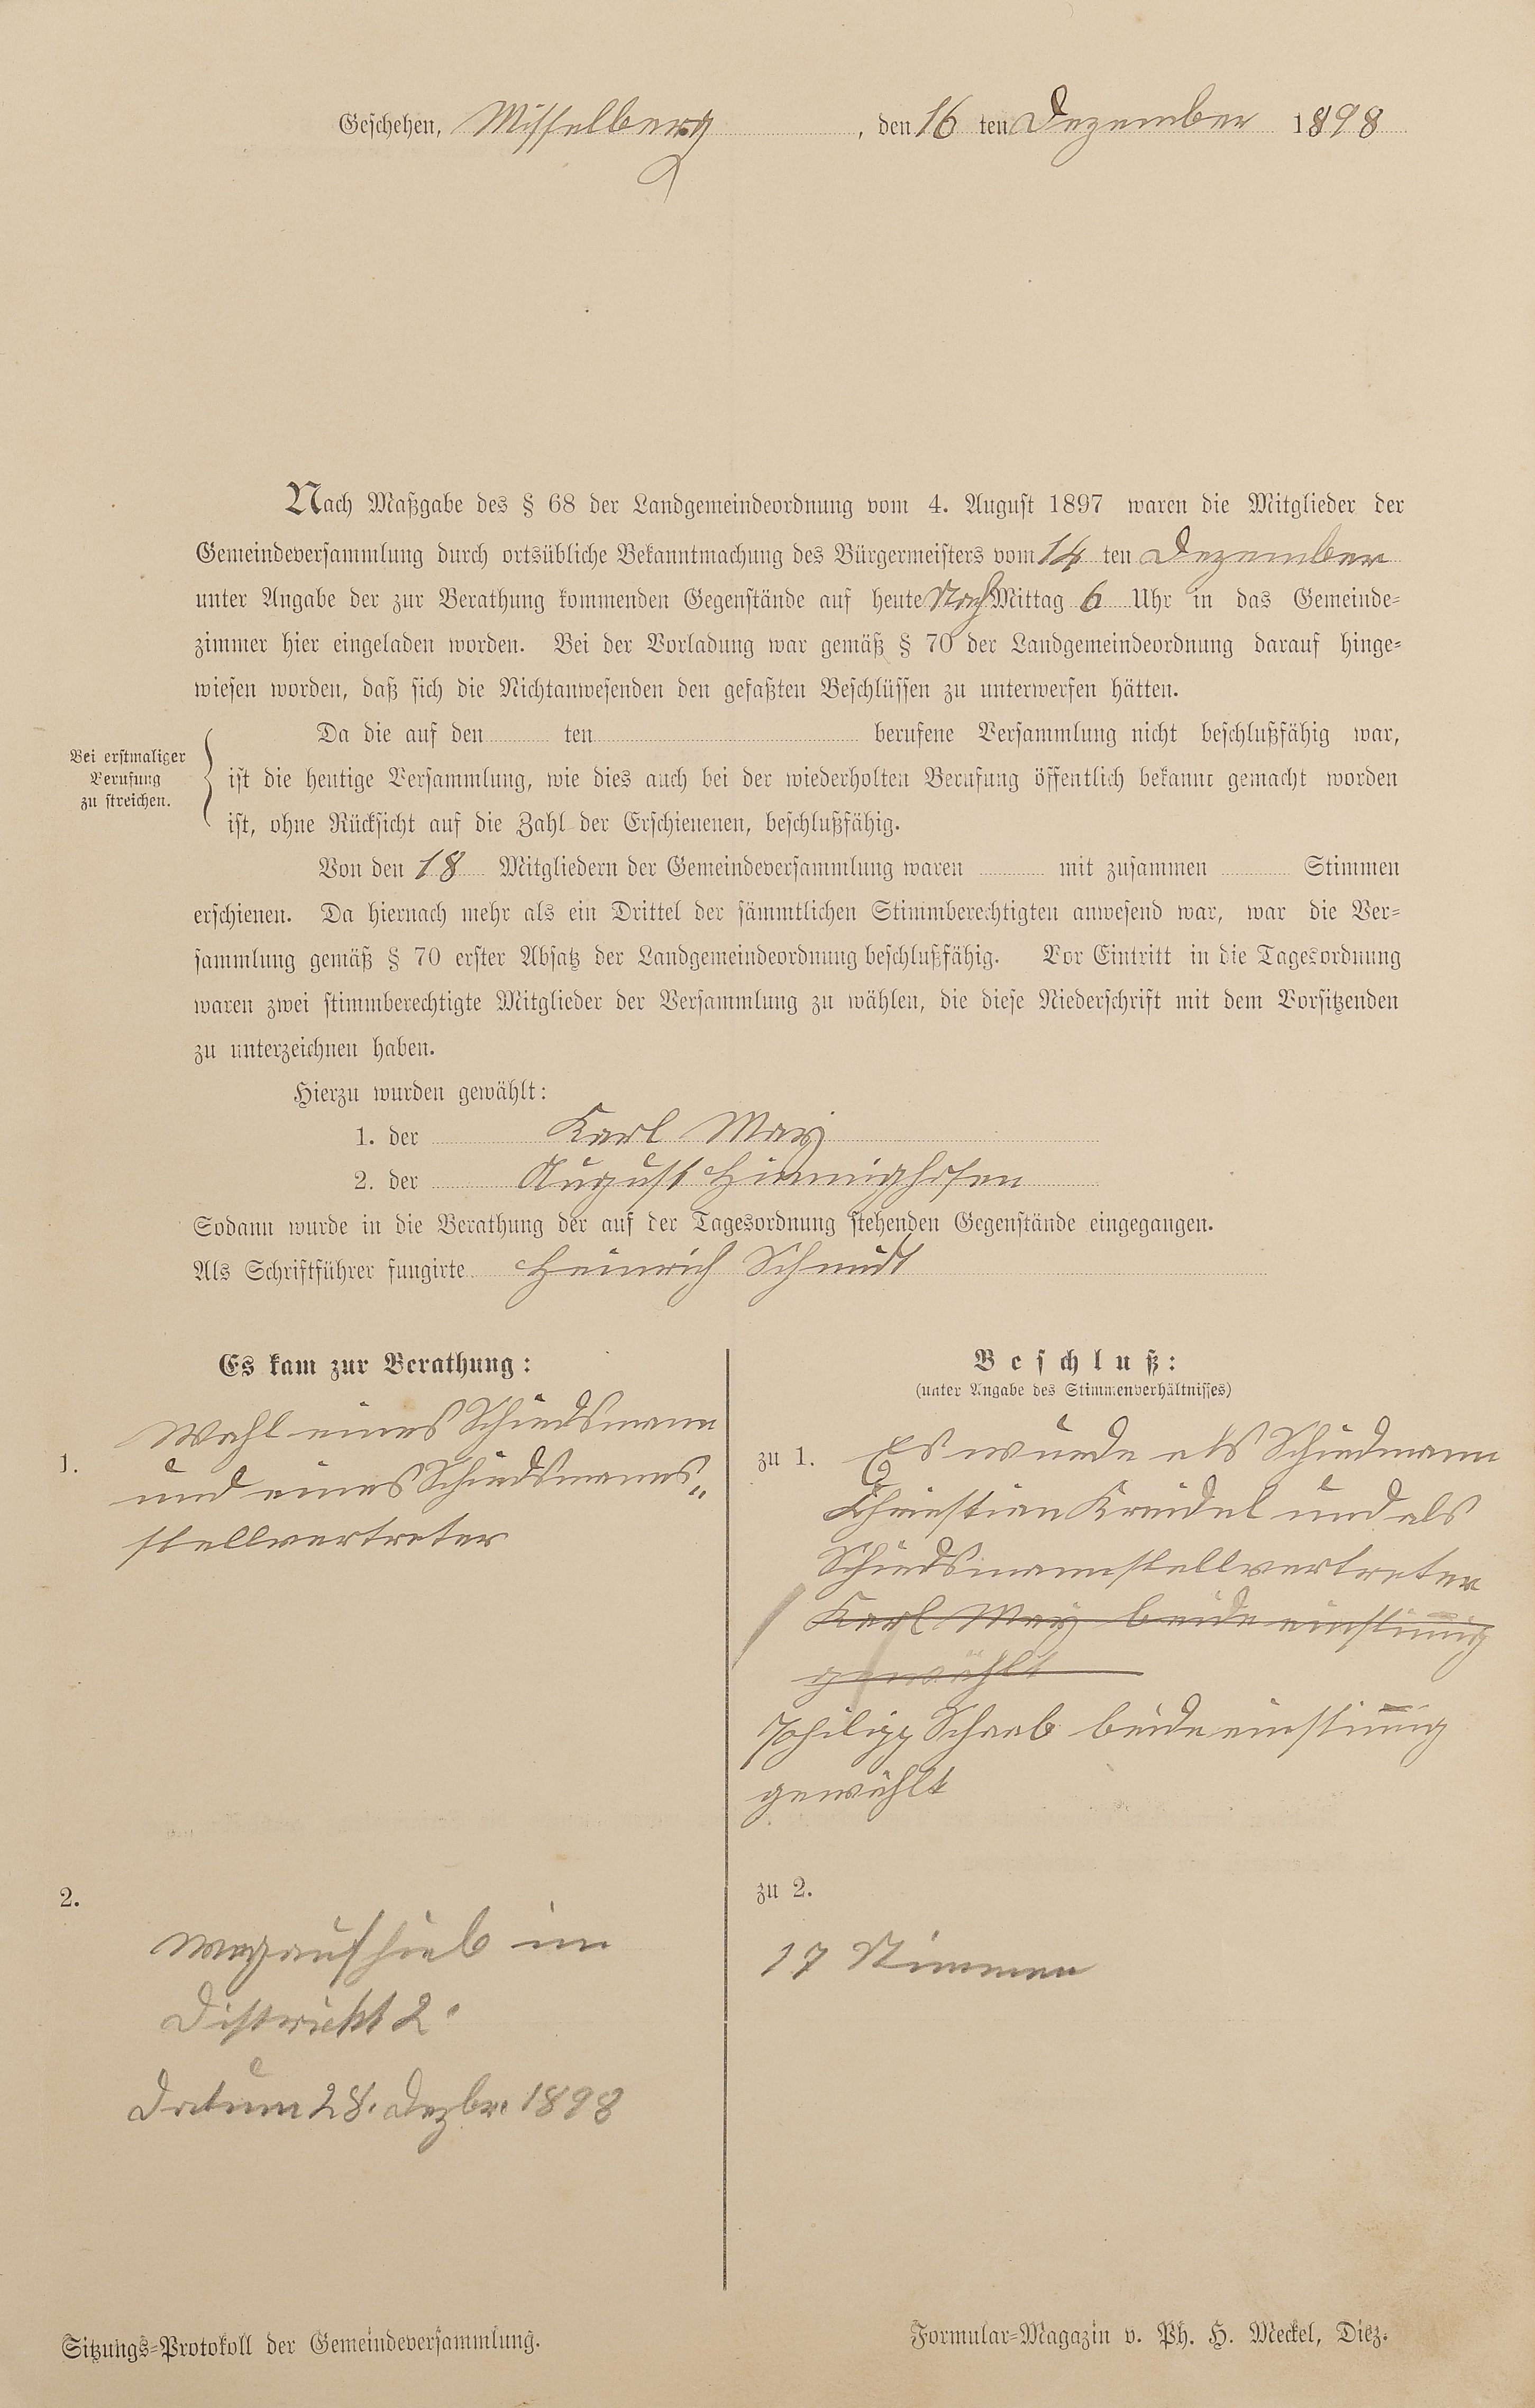 Geschehen, Misselberg, den 16 ten Dezember 1898
Nach Maßgabe des § 68 der Landgemeindeordnung vom 4. August 1897 waren die Mitglieder der
Gemeindeversammlung durch ortsübliche Bekanntmachung des Bürgermeisters vom 14 ten Dezember
unter Angabe der zur Berathung kommenden Gegenstände auf heute Nach Mittag 6 Uhr in das Gemeinde-
zimmer hier eingeladen worden. Bei der Vorladung war gemäß § 70 der Landgemeindeordnung darauf hinge-
wiesen worden, daß sich die Nichtanwesenden den gefaßten Beschlüssen zu unterwerfen hätten.
Bei erstmaliger
Berufung
zu streichen.
Da die auf den ten berufene Versammlung nicht beschlußfähig war,
ist die heutige Versammlung, wie dies auch bei der wiederholten Berufung öffentlich bekannt gemacht worden
ist, ohne Rücksicht auf die Zahl der Erschienenen, beschlußfähig.
Von den 18 Mitgliedern der Gemeindeversammlung waren mit zusammen Stimmen
erschienen. Da hiernach mehr als ein Drittel der sämmtlichen Stimmberechtigten anwesend war, war die Ver-
sammlung gemäß § 70 erster Absatz der Landgemeindeordnung beschlußfähig. Vor Eintritt in die Tagesordnung
waren zwei stimmberechtigte Mitglieder der Versammlung zu wählen, die diese Niederschrift mit dem Vorsitzenden
zu unterzeichnen haben.
Hierzu wurden gewählt:
1. der Karl May
2. der August
Sodann wurde in die Berathung der auf der Tagesordnung stehenden Gegenstände eingegangen.
Als Schriftführer fungirte Heinrich Schmidt
Es kam zur Berathung:
1. Wahl eines Schiedsmann
und eines Schiedsmanns„
stellvertreter
2.
Wegaufhieb im
Districkt 2.
Datum 28. Dezbr. 1898
Beschluß:
(unter Angabe des Stimmenverhältnisses)
zu 1. Es wurde als Schiedmann
Christian Kreidel und als
Schiedsmannstellvertreter
Karl May beide einstimig
gewählt
Philipp Schaab beide einstimig
gewählt
zu 2.
17 Stimmen
Sitzungs-Protokoll der Gemeindeversammlung.
Formular-Magazin v. Ph. H. Meckel, Diez.